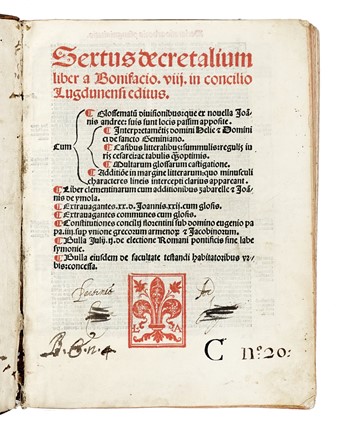 Sextus decretalium
liber a Bonifacio. viij. in concilio
Lugdunensi editus.
¶ Glossematū divisionibus: que ex novella Joā
nis andree: suis sunt locis passim apposite.
Cum
¶ Interpretamētis domini Helie & Domini
ci de sancto Geminiano.
¶ Casibus litteralibus: summulis: regulis iu
ris cesarei: ac tabulis
¶ Multarum glossarum castigatione.
¶ Additiōe in margine litterarum: quo minusculi
characteres lineis intercepti clarius appareant.
¶ Liber clementinarum cum additionibus zabarelle & Joā
nis de ymola.
¶ Extravagantes. xx. d. Joannis. xxij. cum glosis.
¶ Extravagantes communes cum glosis.
¶ Constitutiones concilij florentini sub domino eugenio pa
pa. iiij. sup unione grecorum armenoɤ & Jacobinorum.
¶ Bulla Julij. ij. de electione Romani pontificis sine labe
symonie.
¶ Bulla eiusdem de facultate testandi habitatoribus ur-
bis: concessa.
L A
B. G. n. 4
C nº 20: